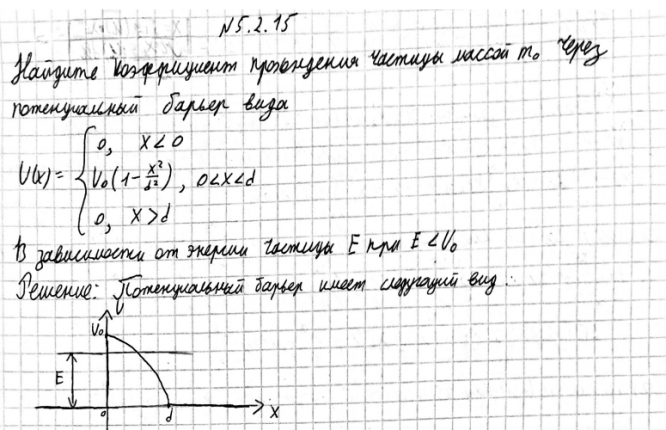 N5.2.15
Найдите коэффициент прохождения частицы массой m₀ через
потенциальный барьер вида
U(x) = { 0, x<0
V₀(1-x²/d²), 0<x<d
0, x>d
В зависимости от энергии частицы E при E<U₀
Решение: Потенциальный барьер имеет следующий вид:
U
V₀
E
0 d x